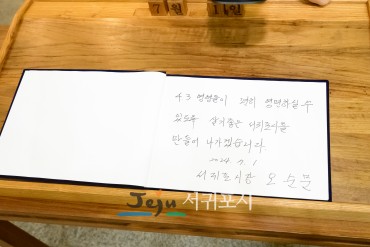 7월 1일
4.3 영령들이 편히 영면하실 수
있도록 살기좋은 서귀포시를
만들어 나가겠습니다.
2024. 7. 1
서귀포시장 오순문
Jeju 서귀포시